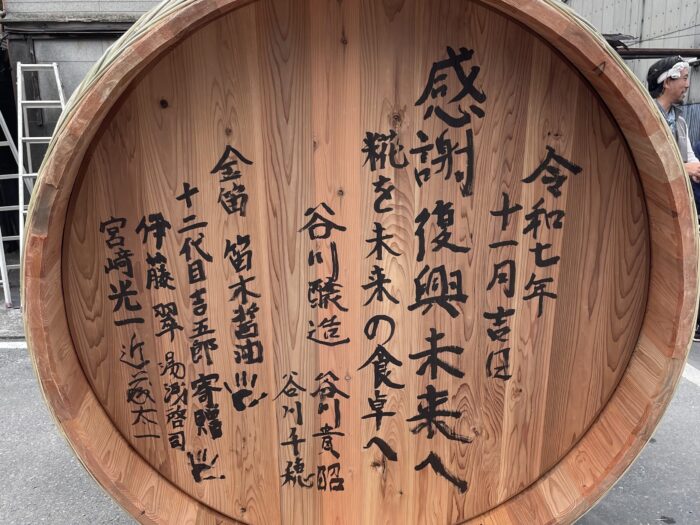 令和七年
十一月吉日
感謝復興未来へ
糀を未来の食卓へ
谷川醸造 谷川貴昭
谷川千穂
金笛 笛木醤油
十二代目吉五郎 寄贈
伊藤 翠 湯浅啓司
宮﨑光一 近藤太一